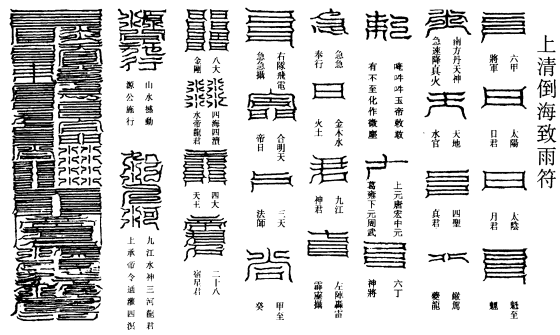 上清倒海致雨符
六甲
將軍
太陽
日君
太陰
月君
魁至
魒
南方丹天神
急速降真火
天地
水官
四聖
真君
唵吽吽玉帝敕敢
有不至化作微塵
上元唐宏中元
葛雍下元周武
六丁
神將
急急
奉行
金木水
火土
九江
神君
左陣轟雷
霹靂攝
右隊飛電
急急攝
合明天
帝日
三天
法師
甲至
癸
八大
金剛
四海四瀆
水帝龍君
四大
天王
二十八
宿星君
山水撼動
源公施行
九江水神三河龍君
上承帝令通灌四溟